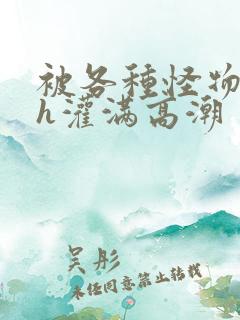 被各種怪物
h灌满高潮
吴彤
未经同意禁止转载